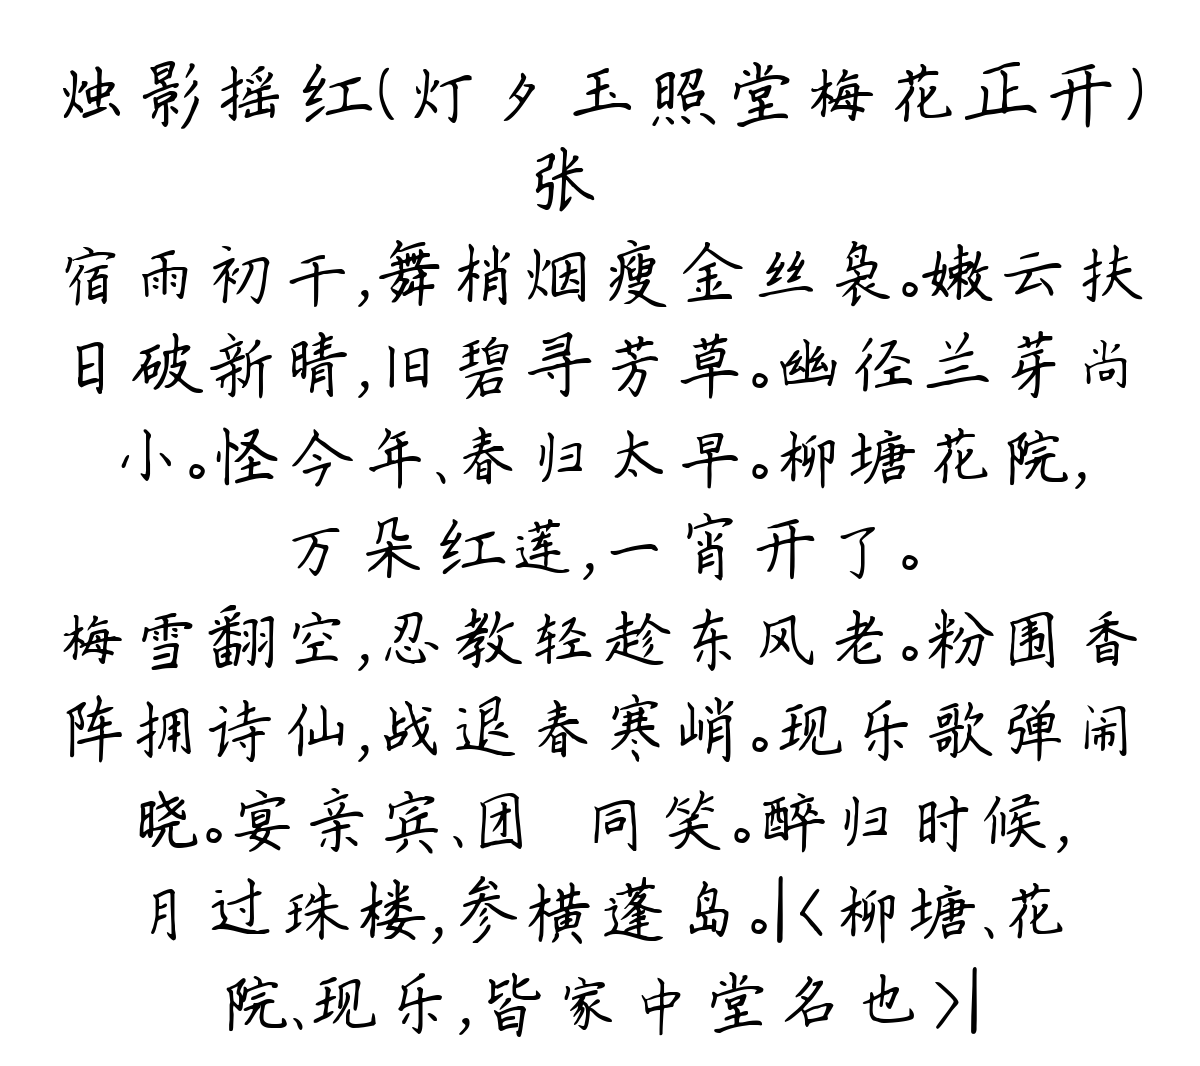 烛影摇红(灯夕玉照堂梅花正开)
张
宿雨初干,舞梢烟瘦金丝袅。嫩云扶
日破新晴,旧碧寻芳草。幽径兰芽尚
小。怪今年、春归太早。柳塘花院,
万朵红莲,一宵开了。
梅雪翻空,忍教轻趁东风老。粉围香
阵拥诗仙,战退春寒峭。现乐歌弹闹
晓。宴亲宾、团 同笑。醉归时候,
月过珠楼,参横蓬岛。|<柳塘、花
院、现乐,皆家中堂名也>|